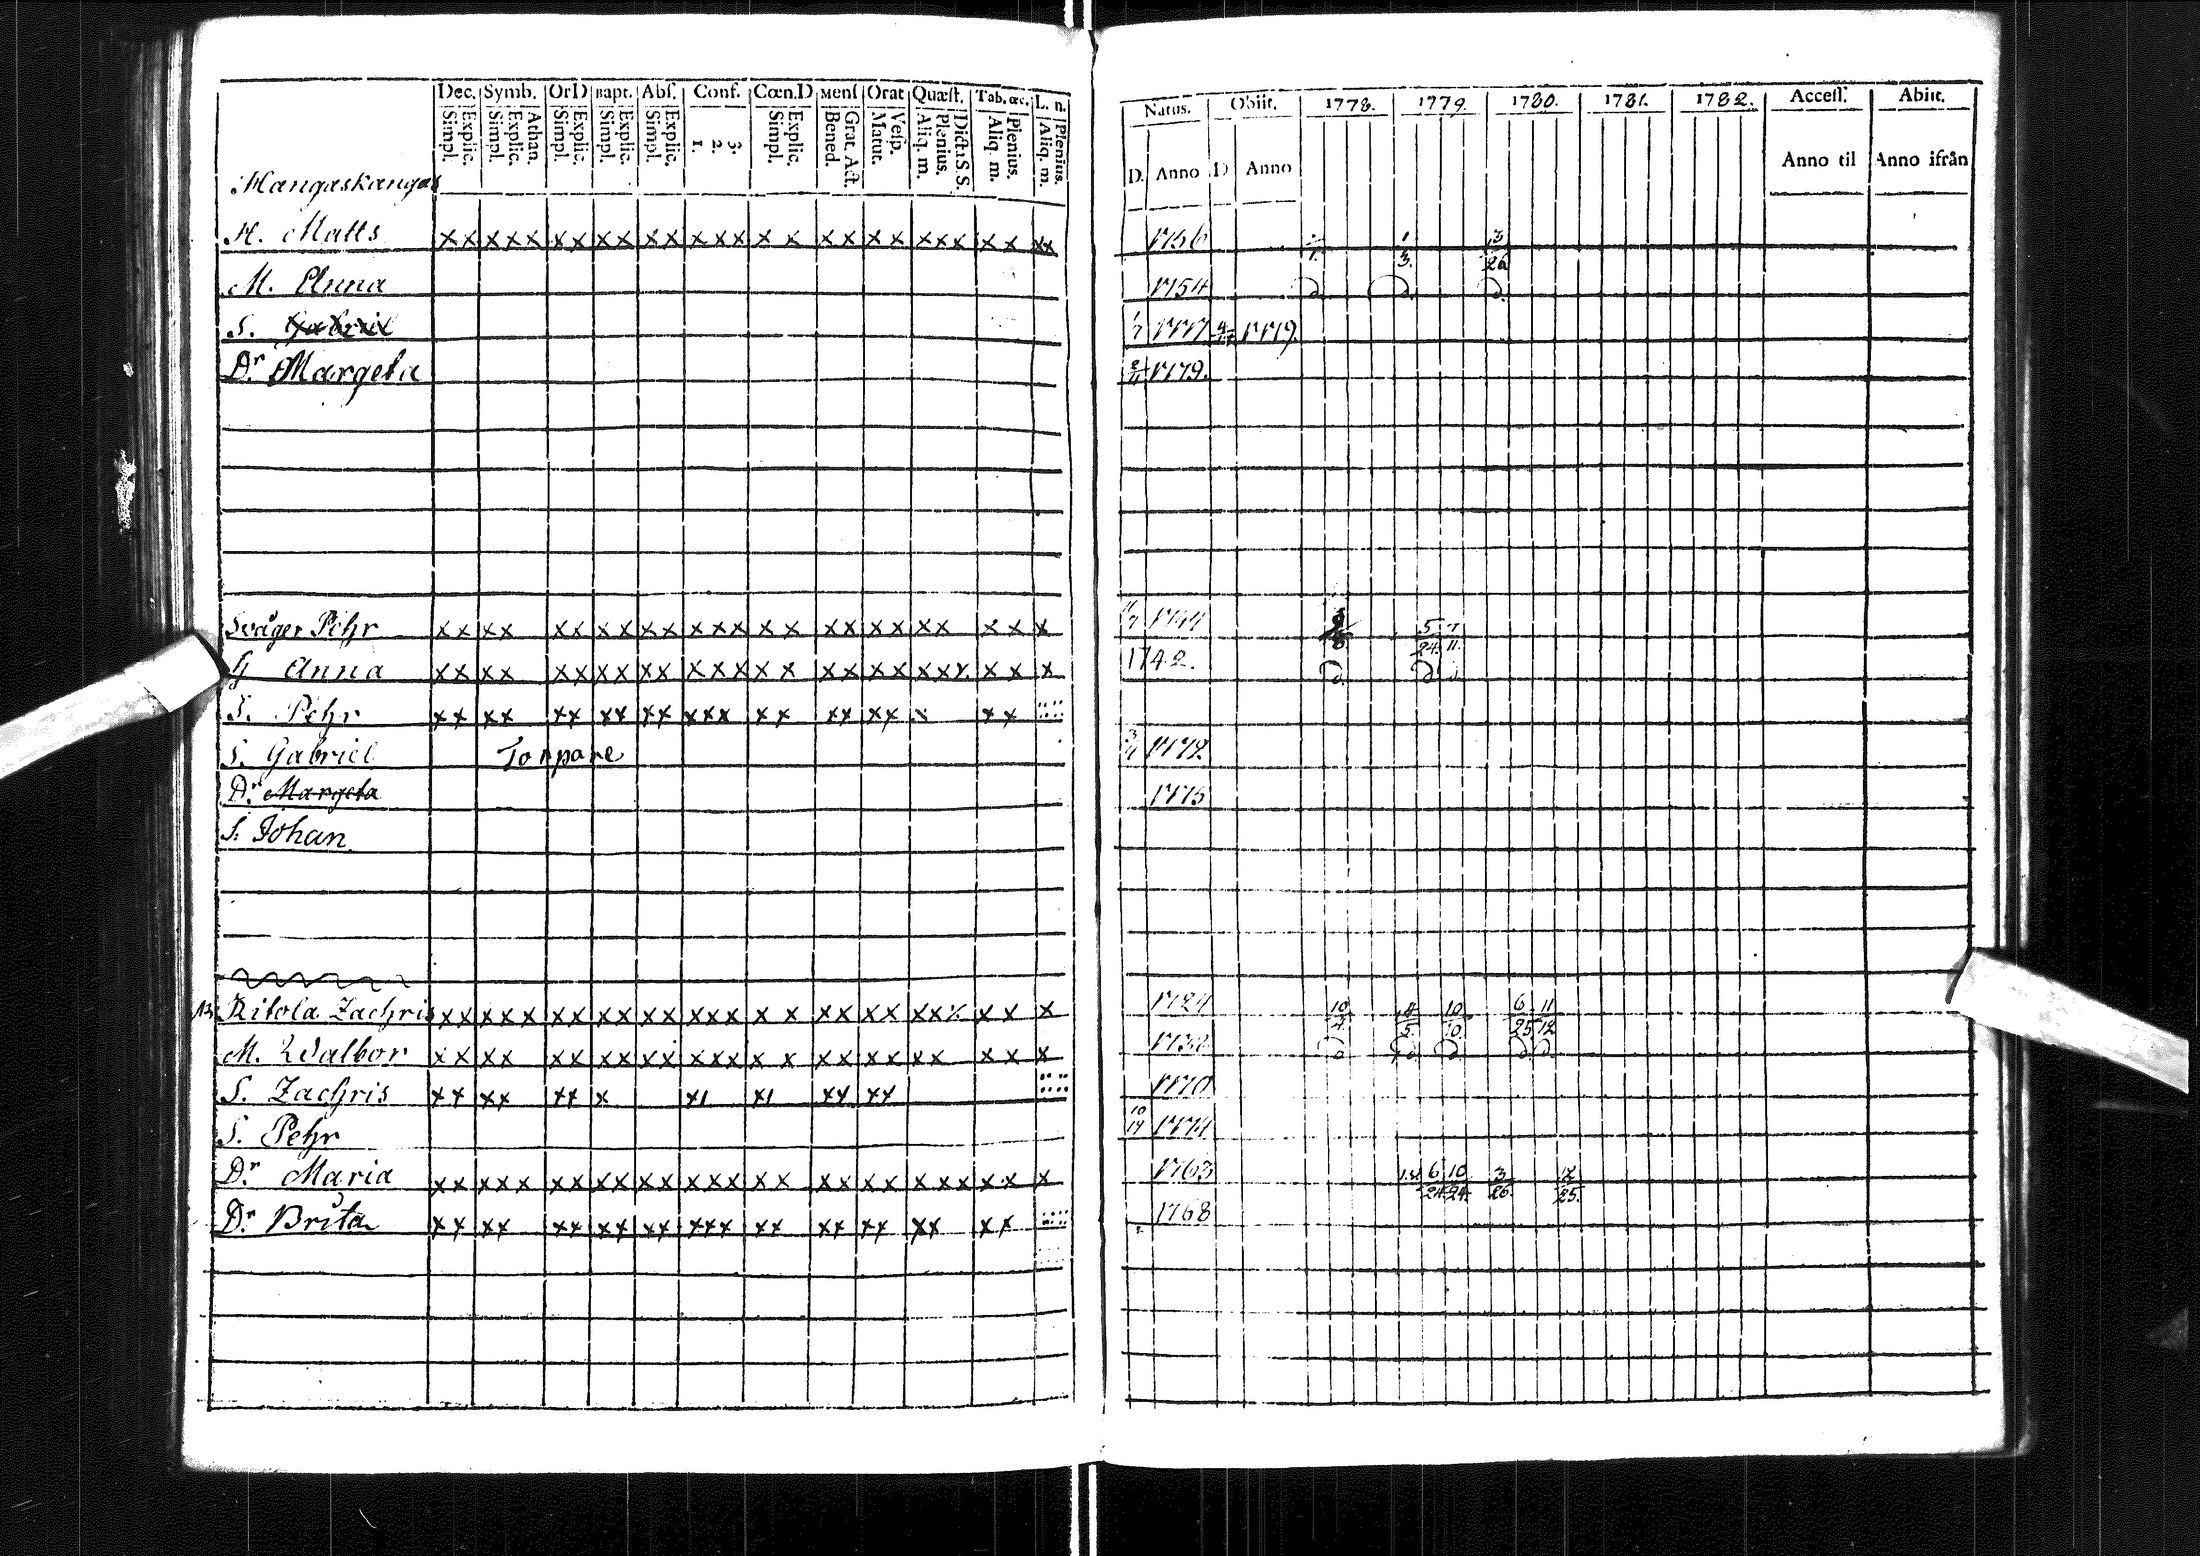 Dec. Symb. OrD Bapt. Abſ. Conf. Cœn.D Menſ Orat Quæſt. Tab.œc. L. n.
Explic. Simpl. Athan. Explic. Simpl. Explic. Simpl. Explic. Simpl. Explic. Simpl. 3. 2. 1. Explic. Simpl. Grat. Act. Bened. Veſp. Matut. Dicta S.S. Plenius. Aliq. m. Plenius. Aliq. m. Plenius. Aliq. m.
Natus. Obiit. 1778. 1779. 1780. 1781. 1782. Acceſſ. Abiit.
D. Anno D Anno Anno til Anno ifrån
Mangaskangas
H. Matts xx xxx xx xx xx xxx x x xx xx xxx x x xx 1756 1/3. 3/26
M. Anna 1754
S. Gabriel 1/7 1777 1779.
Dr Margeta 1779.
Svåger Pehr xx xx xx xx xx xxx x x xx xx xx x x x 1744 5/24. 7/11.
Anna xx xx xx xx xx xxx x x xx xx xxx x x x 1742.
S. Pehr xx xx xx xx xx xxx xx xx xx x xx
S. Gabriel Torpare 3/4 1772.
Dr Margeta 1775
S. Johan
Ritola Zachris xx xxx xx xx xx xxx x x xx xx xxx x x x 1724 10/4. 4/5. 10/10. 6/25 11/12
M. Walbor xx xx xx xx xx xxx x x xx xx xx x x x
S. Zachris xx xx xx x x1 x1 xx xx 1770
S. Pehr 10/19 1774
Dr Maria xx xxx xx xx xx xxx xx xx xx xxx xx x 1763 6/24 10/24. 3/26. 12/25.
Dr Brita xx xx xx xx xx xxx xx xx xx xx xx 1768